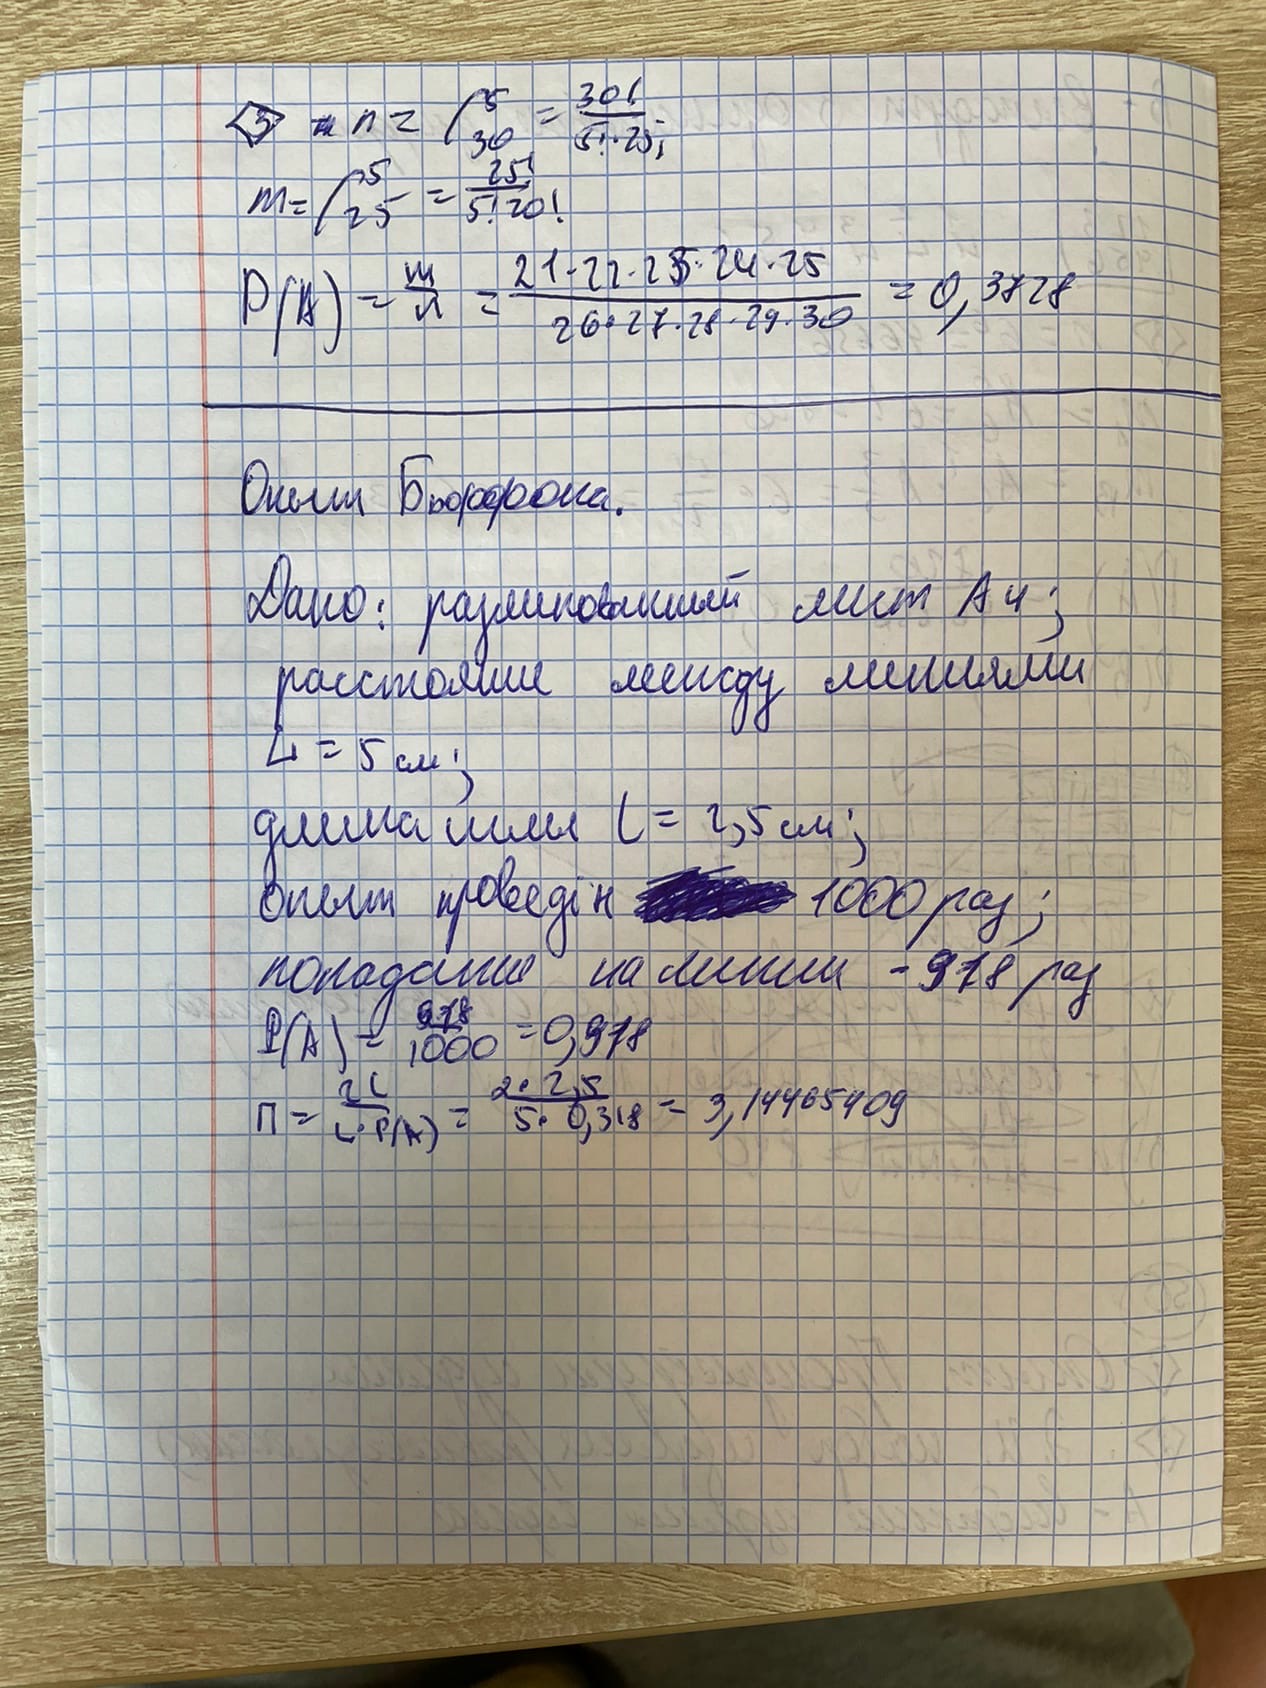 3 n = C⁵₃₀ = 30! / 5!·25!
m = C⁵₂₅ = 25! / 5!20!
P(A) = m/n = 21·22·23·24·25 / 26·27·28·29·30 = 0,3728
Опыт Бюффона.
Дано: разлинованный лист А4;
расстояние между линиями
L = 5 см;
длина иглы l = 2,5 см;
опыт проведён 1000 раз;
попадание на линии - 978 раз
P(A) = 978/1000 = 0,978
П = 2l / L·P(A) = 2·2,5 / 5·0,318 = 3,14465409